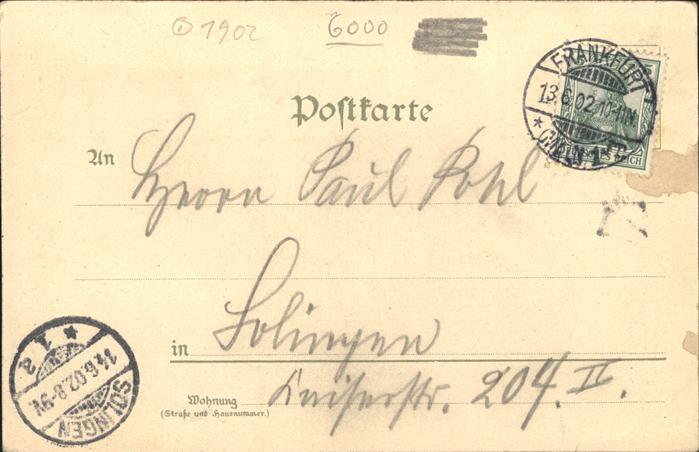 1902
6000
FRANKFURT
13.6.02.10-11N.
DEUTSCHES REICH
Postkarte
An Herrn Paul Pohl
in Solingen
Wohnung Kaiserstr. 204. II.
(Straße und Hausnummer.)
* 1 a
14.6.02.8-9V.
SOLINGEN